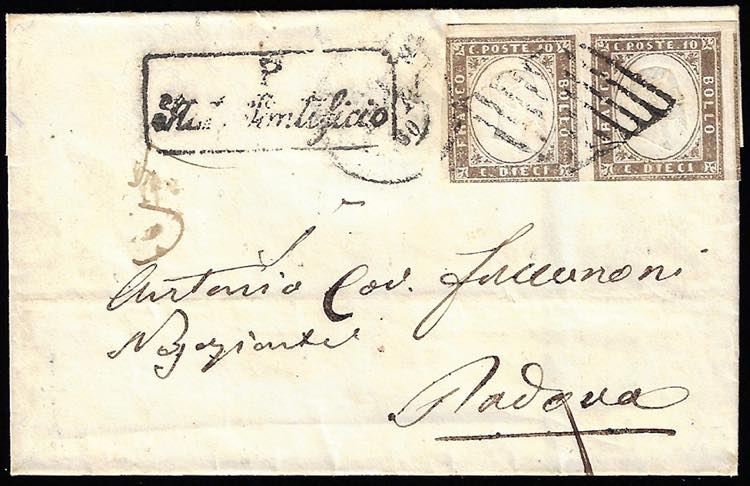 P
Stato Pontificio
C. POSTE 10
FRANCO
BOLLO
C. DIECI
C. POSTE 10
BOLLO
C. DIECI
60
Antonio Cav. Faccanoni
Negoziante
Padova